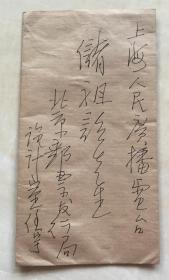 上海人民广播电台
储祖诒先生
北京邮票发行局
设计董任寄